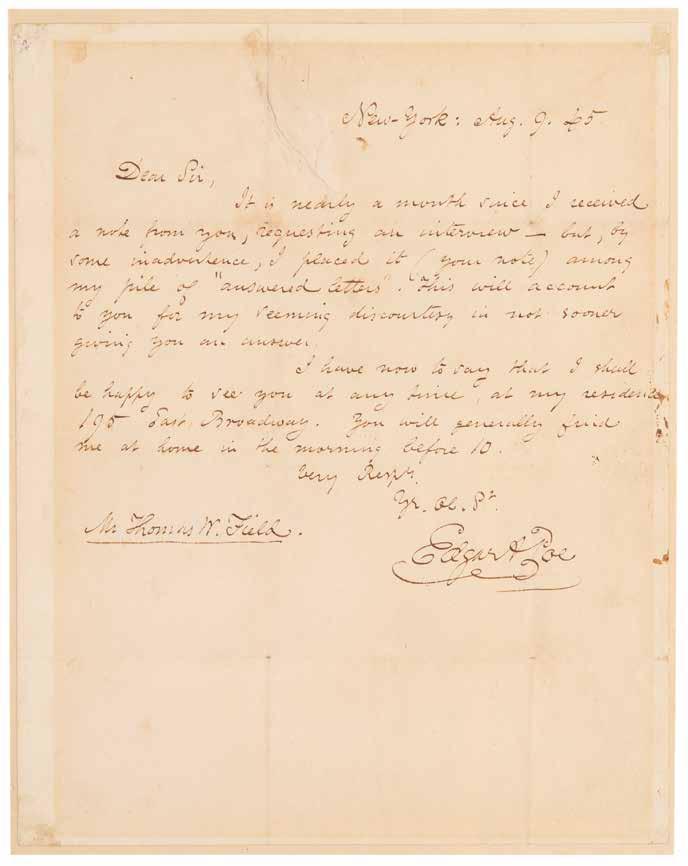 New-York: Aug. 9. 45.
Dear Sir,
It is nearly a month since I received
a note from you, requesting an interview — but, by
some inadvertence, I placed it (your note) among
my pile of "answered letters". This will account
to you for my seeming discourtesy in not sooner
giving you an answer.
I have now to say that I shall
be happy to see you at any time, at my residence,
195 East Broadway. You will generally find
me at home in the morning before 10.
Very Resply.
Yr. Ob. St.
Mr Thomas W. Field.
Edgar A Poe